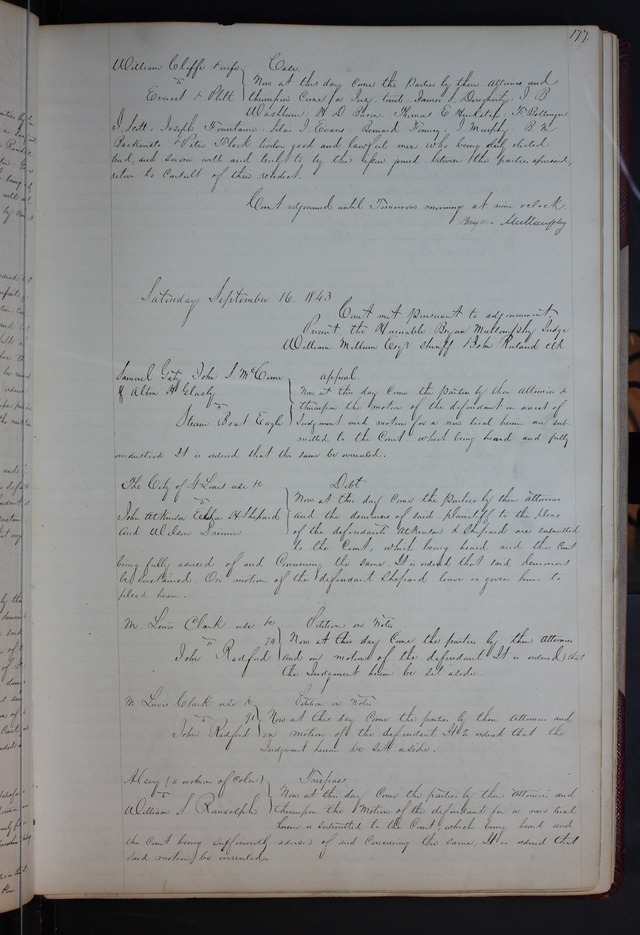 177
William Cliffe & wife Case
vs Now at this day Come the Parties by their Attornies and
Evert & Platt thereupon Come a Jury to wit. James S. Dougherty, J B
Washburn. H D Bacon. Thomas E
J. Scott. Joseph Fountaine. Silas J. Evans. Bernard Finney. J Murphy. B. W.
& Peter Black twelve good and lawful men who being duly elected
tried, and sworn well and truly to try the issue joined between the parties aforesaid,
retire to Consult of their verdict.
Court adjourned until Tomorrow morning at nine oclock
Bryan Mullanphy
Saturday September 16. 1843
Court met pursuant to adjournment.
Present the Honorable Bryan Mullanphy Judge
William Milburn Esqr sheriff & John Ruland clk
Samuel Gaty John S McCune appeal
& Alban H Glasby Now at this day Come the parties by their Attornies &
vs thereupon the motion of the defendant in arrest of
Steam Boat Eagle Judgment and motion for a new trial herein are sub-
mitted to the Court. which being heard and fully
understood It is ordered that the same be overruled.
The City of St Louis use &c Debt
vs Now at this day Come the parties by their attornies
John Atkinson H Shepard and the demurrer of said plaintiff to the pleas
And Wilson of the defendants Atkinson & Shepard are submitted
to the Court, which being heard and the Court
being fully advised of and Concerning the same. It is ordered that said demurrer
be sustained. On motion of the defendant Shepard leave is given him to
plead herein.
M. Lewis Clark use &c Petition on Note
vs 90 Now at this day Come the parties by their Attornies
John Radford and on motion of the defendant It is ordered that
the Judgment herein be set aside.
M Lewis Clark use &c Petition on Note
vs 91 Now at this day Come the parties by their Attornies and
John Radford on motion of the defendant It is ordered that the
Judgment herein be set aside.
Alsey (a woman of Color) Trespass
vs Now at this day Come the parties by their Attornies and
William S Randolph thereupon the Motion of the defendant for a new trial
herein is submitted to the Court, which being heard and
the Court being sufficiently advised of and Concerning the same, It is ordered that
said motion be overruled.